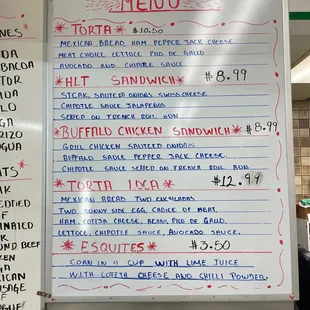 NES
DA
BACOA
TOR
DA
LO
A
RIZO
GUA
TS
K
EDDED
F
INAICO
CK
ND BEEF
EN
GA
XICAN
USAGE
F
MENU
TORTA $10.50
MEXICAN BREAD, HAM PEPPER JACK CHEESE
MEAT CHOICE LETTUCE PICO DE GALLO
AVOCADO AND CHIPOTLE SAUCE
HLT SANDWICH $8.99
STEAK, SAUTEED ONIONS SWISS CHEESE
CHIPOTLE SAUCE JALAPEÑOS
SERVED ON FRENCH ROLL BUN
BUFFALO CHICKEN SANDWICH $8.99
GRILL CHICKEN SAUTEED ONIONS
BUFFALO SAUCE PEPPER JACK CHEESE.
CHIPOTLE SAUCE SERVED ON FRENCH ROLL BUN
TORTA LOCA $12.99
MEXICAN BREAD TWO ENCHILADAS
TWO SUNNY SIDE EGG, CHOICE OF MEAT,
HAM, COTIJA CHEESE, BEANS, PICO DE GALLO.
LETTUCE, CHIPOTLE SAUCE, AVOCADO SAUCE.
ESQUITES $3.50
CORN IN A CUP WITH LIME JUICE
WITH COTIJA CHEESE AND CHILLI POWDER.